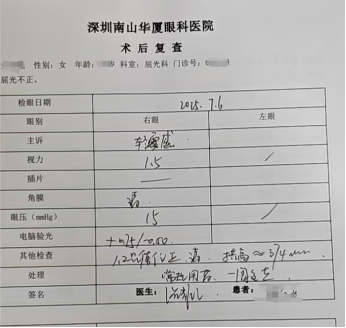 深圳南山华厦眼科医院
术后复查
性别：女 年龄： 岁 科室：屈光科 门诊号：
屈光不正。
检眼日期 2025.7.6
眼别 右眼 左眼
主诉
视力 1.5 /
插片 —
角膜 清
眼压（mmHg） 15 /
电脑验光 +0.75/-0.00
其他检查 位正 清 拱高≈3/4
处理 常规用药 一周复查
签名 医生： 患者：